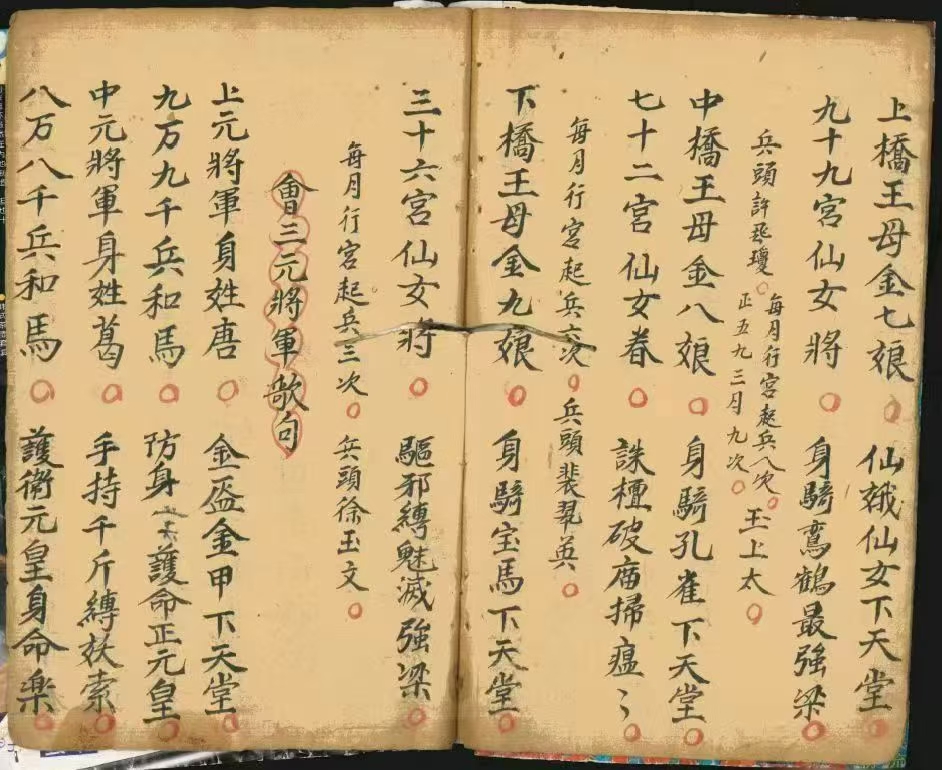 上橋王母金七娘 仙娥仙女下天堂
九十九宮仙女將 身騎鸞鶴最強梁
兵頭許丞瓊 每月行宮起兵八次
正五九三月九次 王上太
中橋王母金八娘 身騎孔雀下天堂
七十二宮仙女眷 誅檀破庙掃瘟〻
每月行宮起兵六次 兵頭裴翠英
下橋王母金九娘 身騎宝馬下天堂
三十六宮仙女將 驅邪縛魅滅強梁
每月行宮起兵三次 兵頭徐玉文
會三元將軍歌句
上元將軍身姓唐 金盔金甲下天堂
九万九千兵和馬 防身護命正元皇
中元將軍身姓葛 手持千斤縛妖索
八万八千兵和馬 護衛元皇身命楽